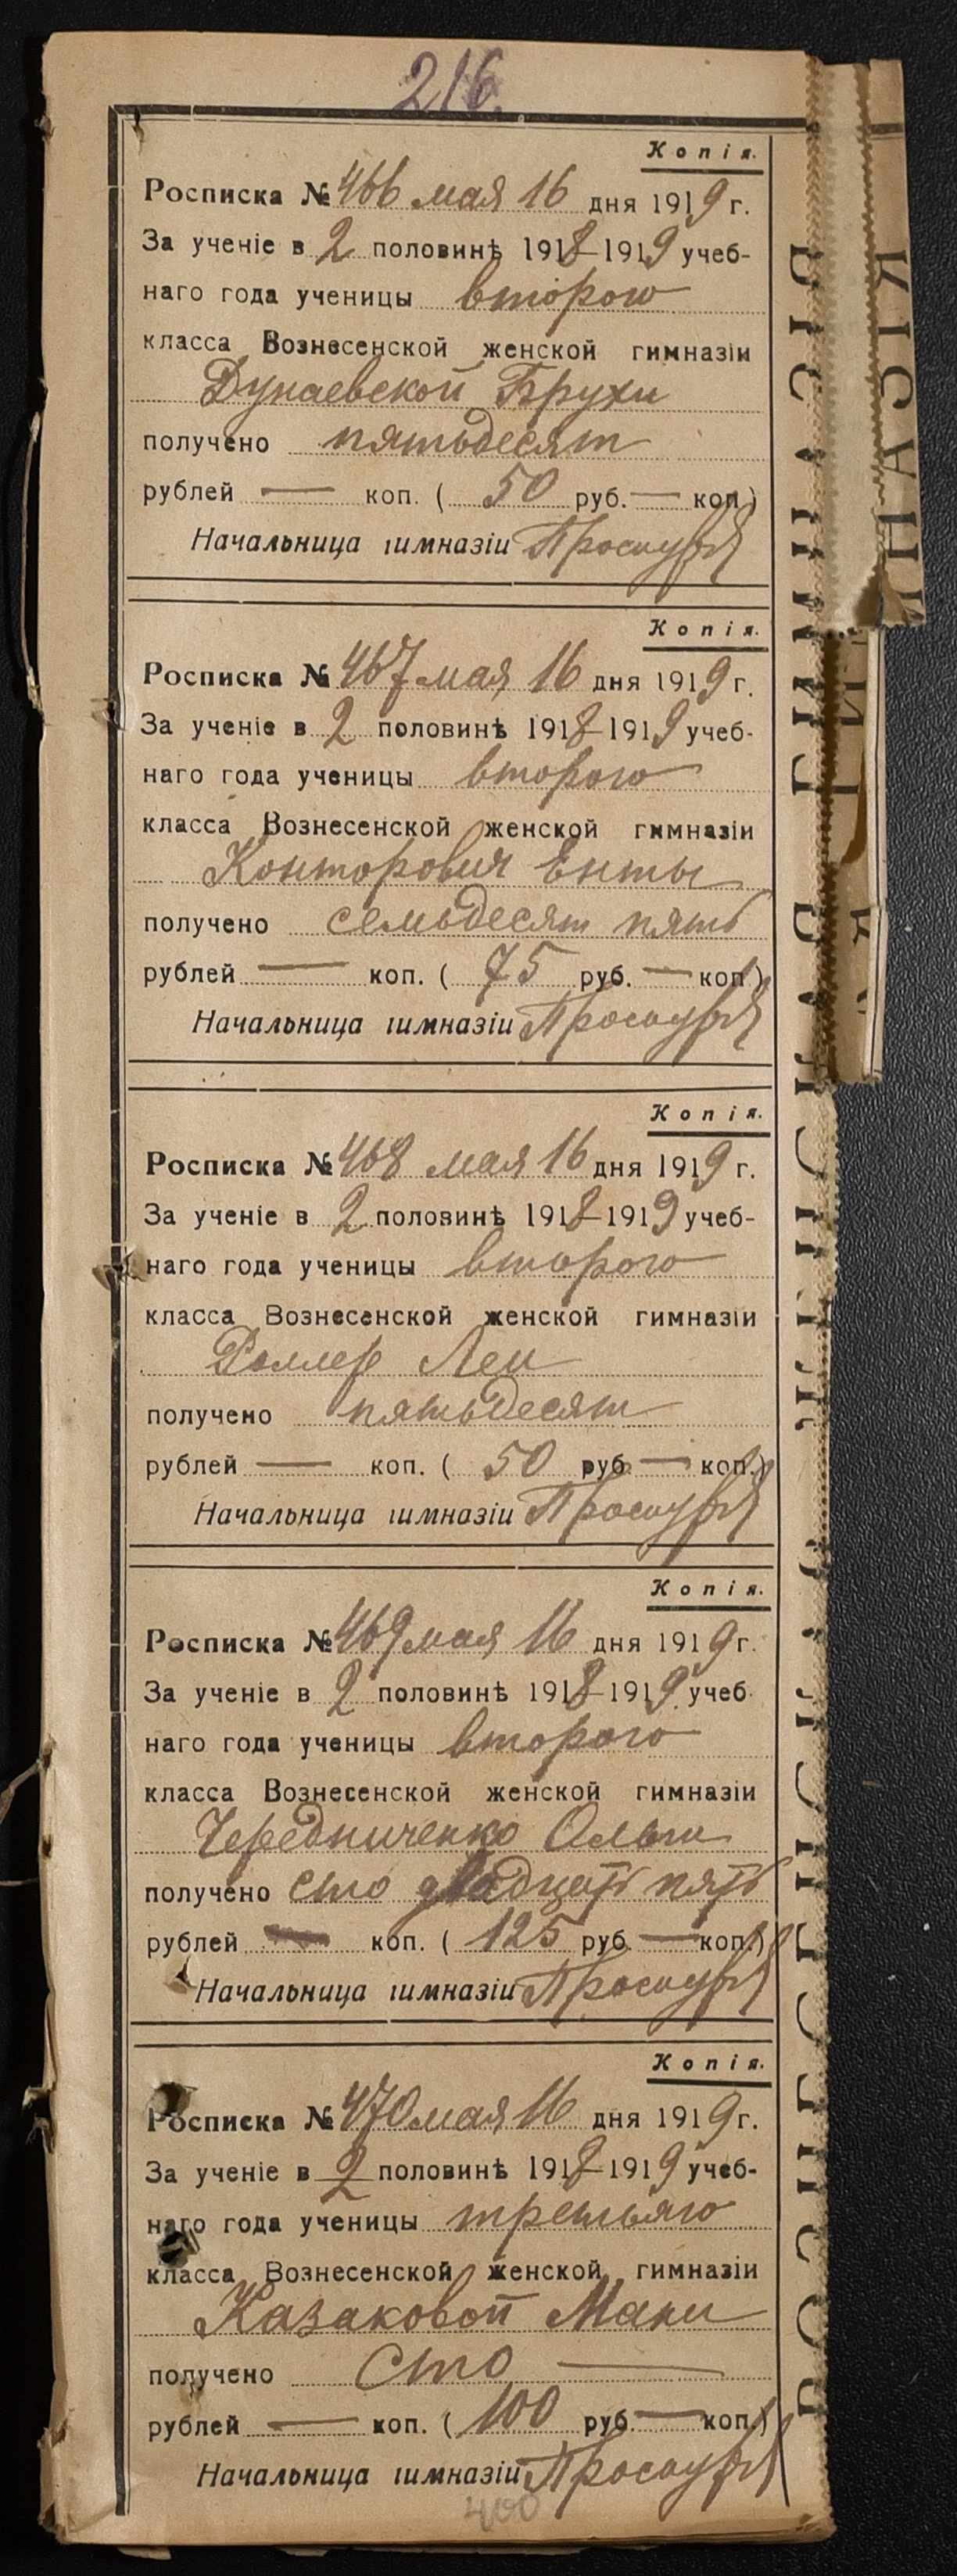 216.
Копія.
Росписка № 466 мая 16 дня 1919 г.
За ученіе в 2 половинѣ 1918–1919 учеб-
наго года ученицы второго
класса Вознесенской женской гимназіи
Дунаевской Брухи
получено пятьдесят
рублей — коп. ( 50 руб. — коп.)
Начальница гимназіи
Копія.
Росписка № 467 мая 16 дня 1919 г.
За ученіе в 2 половинѣ 1918–1919 учеб-
наго года ученицы второго
класса Вознесенской женской гимназіи
Конторович Енты
получено семьдесят пять
рублей — коп. ( 75 руб. — коп.)
Начальница гимназіи
Копія.
Росписка № 468 мая 16 дня 1919 г.
За ученіе в 2 половинѣ 1918–1919 учеб-
наго года ученицы второго
класса Вознесенской женской гимназіи
Роллер Леи
получено пятьдесят
рублей — коп. ( 50 руб. — коп.)
Начальница гимназіи
Копія.
Росписка № 469 мая 16 дня 1919 г.
За ученіе в 2 половинѣ 1918–1919 учеб
наго года ученицы второго
класса Вознесенской женской гимназіи
Чередниченко Ольги
получено сто двадцать пять
рублей — коп. ( 125 руб. — коп.)
Начальница гимназіи
Копія.
Росписка № 470 мая 16 дня 1919 г.
За ученіе в 2 половинѣ 1918–1919 учеб-
наго года ученицы третьяго
класса Вознесенской женской гимназіи
Казаковой Мани
получено сто —
рублей — коп. ( 100 руб. — коп.)
Начальница гимназіи
400